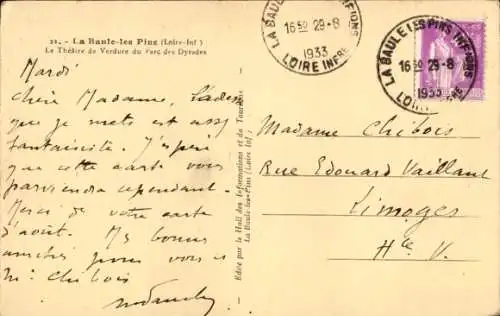 21. - La Baule-les Pins (Loire-Inf)
Le Théâtre de Verdure du Parc des Dryades
Mardi
Chère Madame, L'adresse
que je mets est assez
fantaisiste. J'espère
que cette carte vous
parviendra cependant.
Merci de votre carte
d'août. Mes bonnes
amitiés pour vous et
Mr Chibois
Editée par le Hall des Informations et du Tourisme
La Baule-les-Pins (Loire Inf)
LA BAULE LES PINS INFIONS
16 30 29-8
1933
LOIRE INFRE
LA BAULE LES PINS INFIONS
16 30 29-8
1933
LOIRE INFRE
Madame Chibois
Rue Edouard Vaillant
Limoges
Hte V.